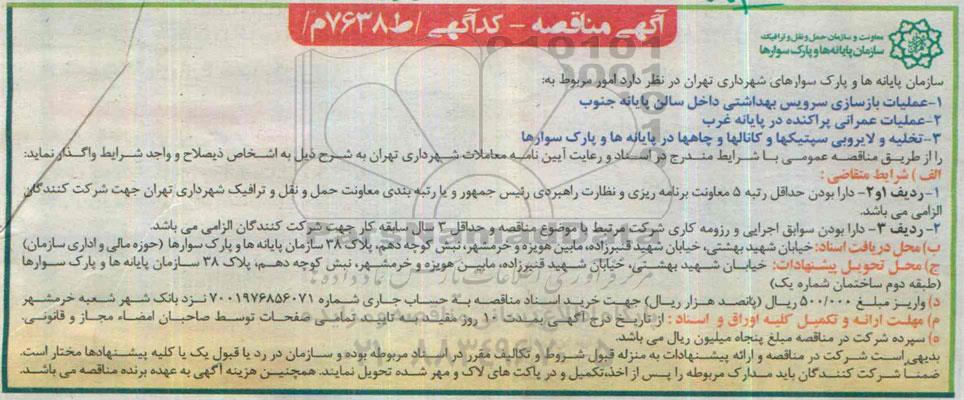 آگهی مناقصه - کدآگهی /ط۷۶۳۸م/
معاونت و سازمان حمل و نقل و ترافیک
سازمان پایانه ها و پارک سوارها
سازمان پایانه ها و پارک سوارهای شهرداری تهران در نظر دارد امور مربوط به:
۱-عملیات بازسازی سرویس بهداشتی داخل سالن پایانه جنوب
۲-عملیات عمرانی پراکنده در پایانه غرب
۳-تخلیه و لایروبی سپتیکها و کانالها و چاهها در پایانه ها و پارک سوارها
را از طریق مناقصه عمومی با شرایط مندرج در اسناد و رعایت آیین نامه معاملات شهرداری تهران به شرح ذیل به اشخاص ذیصلاح و واجد شرایط واگذار نماید:
الف) شرایط متقاضی:
۱- ردیف ۱و۲- دارا بودن حداقل رتبه ۵ معاونت برنامه ریزی و نظارت راهبردی رئیس جمهور و یا رتبه بندی معاونت حمل و نقل و ترافیک شهرداری تهران جهت شرکت کنندگان
الزامی می باشد.
۲- ردیف ۳- دارا بودن سوابق اجرایی و رزومه کاری شرکت مرتبط با موضوع مناقصه و حداقل ۳ سال سابقه کار جهت شرکت کنندگان الزامی می باشد.
ب) محل دریافت اسناد: خیابان شهید بهشتی، خیابان شهید قنبرزاده، مابین هویزه و خرمشهر، نبش کوچه دهم، پلاک ۳۸ سازمان پایانه ها و پارک سوارها (حوزه مالی و اداری سازمان)
ج) محل تحویل پیشنهادات: خیابان شهید بهشتی، خیابان شهید قنبرزاده، مابین هویزه و خرمشهر، نبش کوچه دهم، پلاک ۳۸ سازمان پایانه ها و پارک سوارها
(طبقه دوم ساختمان شماره یک)
د) واریز مبلغ ۵۰۰/۰۰۰ ریال (پانصد هزار ریال) جهت خرید اسناد مناقصه به حساب جاری شماره ۷۰۰۱۹۷۶۸۵۶۰۷۱ نزد بانک شهر شعبه خرمشهر
م) مهلت ارائه و تکمیل کلیه اوراق و اسناد: از تاریخ درج آگهی بمدت ۱۰ روز مفید به تایید تمامی صفحات توسط صاحبان امضاء مجاز و قانونی.
ه) سپرده شرکت در مناقصه مبلغ پنجاه میلیون ریال می باشد.
بدیهی است شرکت در مناقصه و ارائه پیشنهادات به منزله قبول شروط و تکالیف مقرر در اسناد مربوطه بوده و سازمان در رد یا قبول یک یا کلیه پیشنهادها مختار است.
ضمناً شرکت کنندگان باید مدارک مربوطه را پس از اخذ،تکمیل و در پاکت های لاک و مهر شده تحویل نمایند. همچنین هزینه آگهی به عهده برنده مناقصه می باشد.